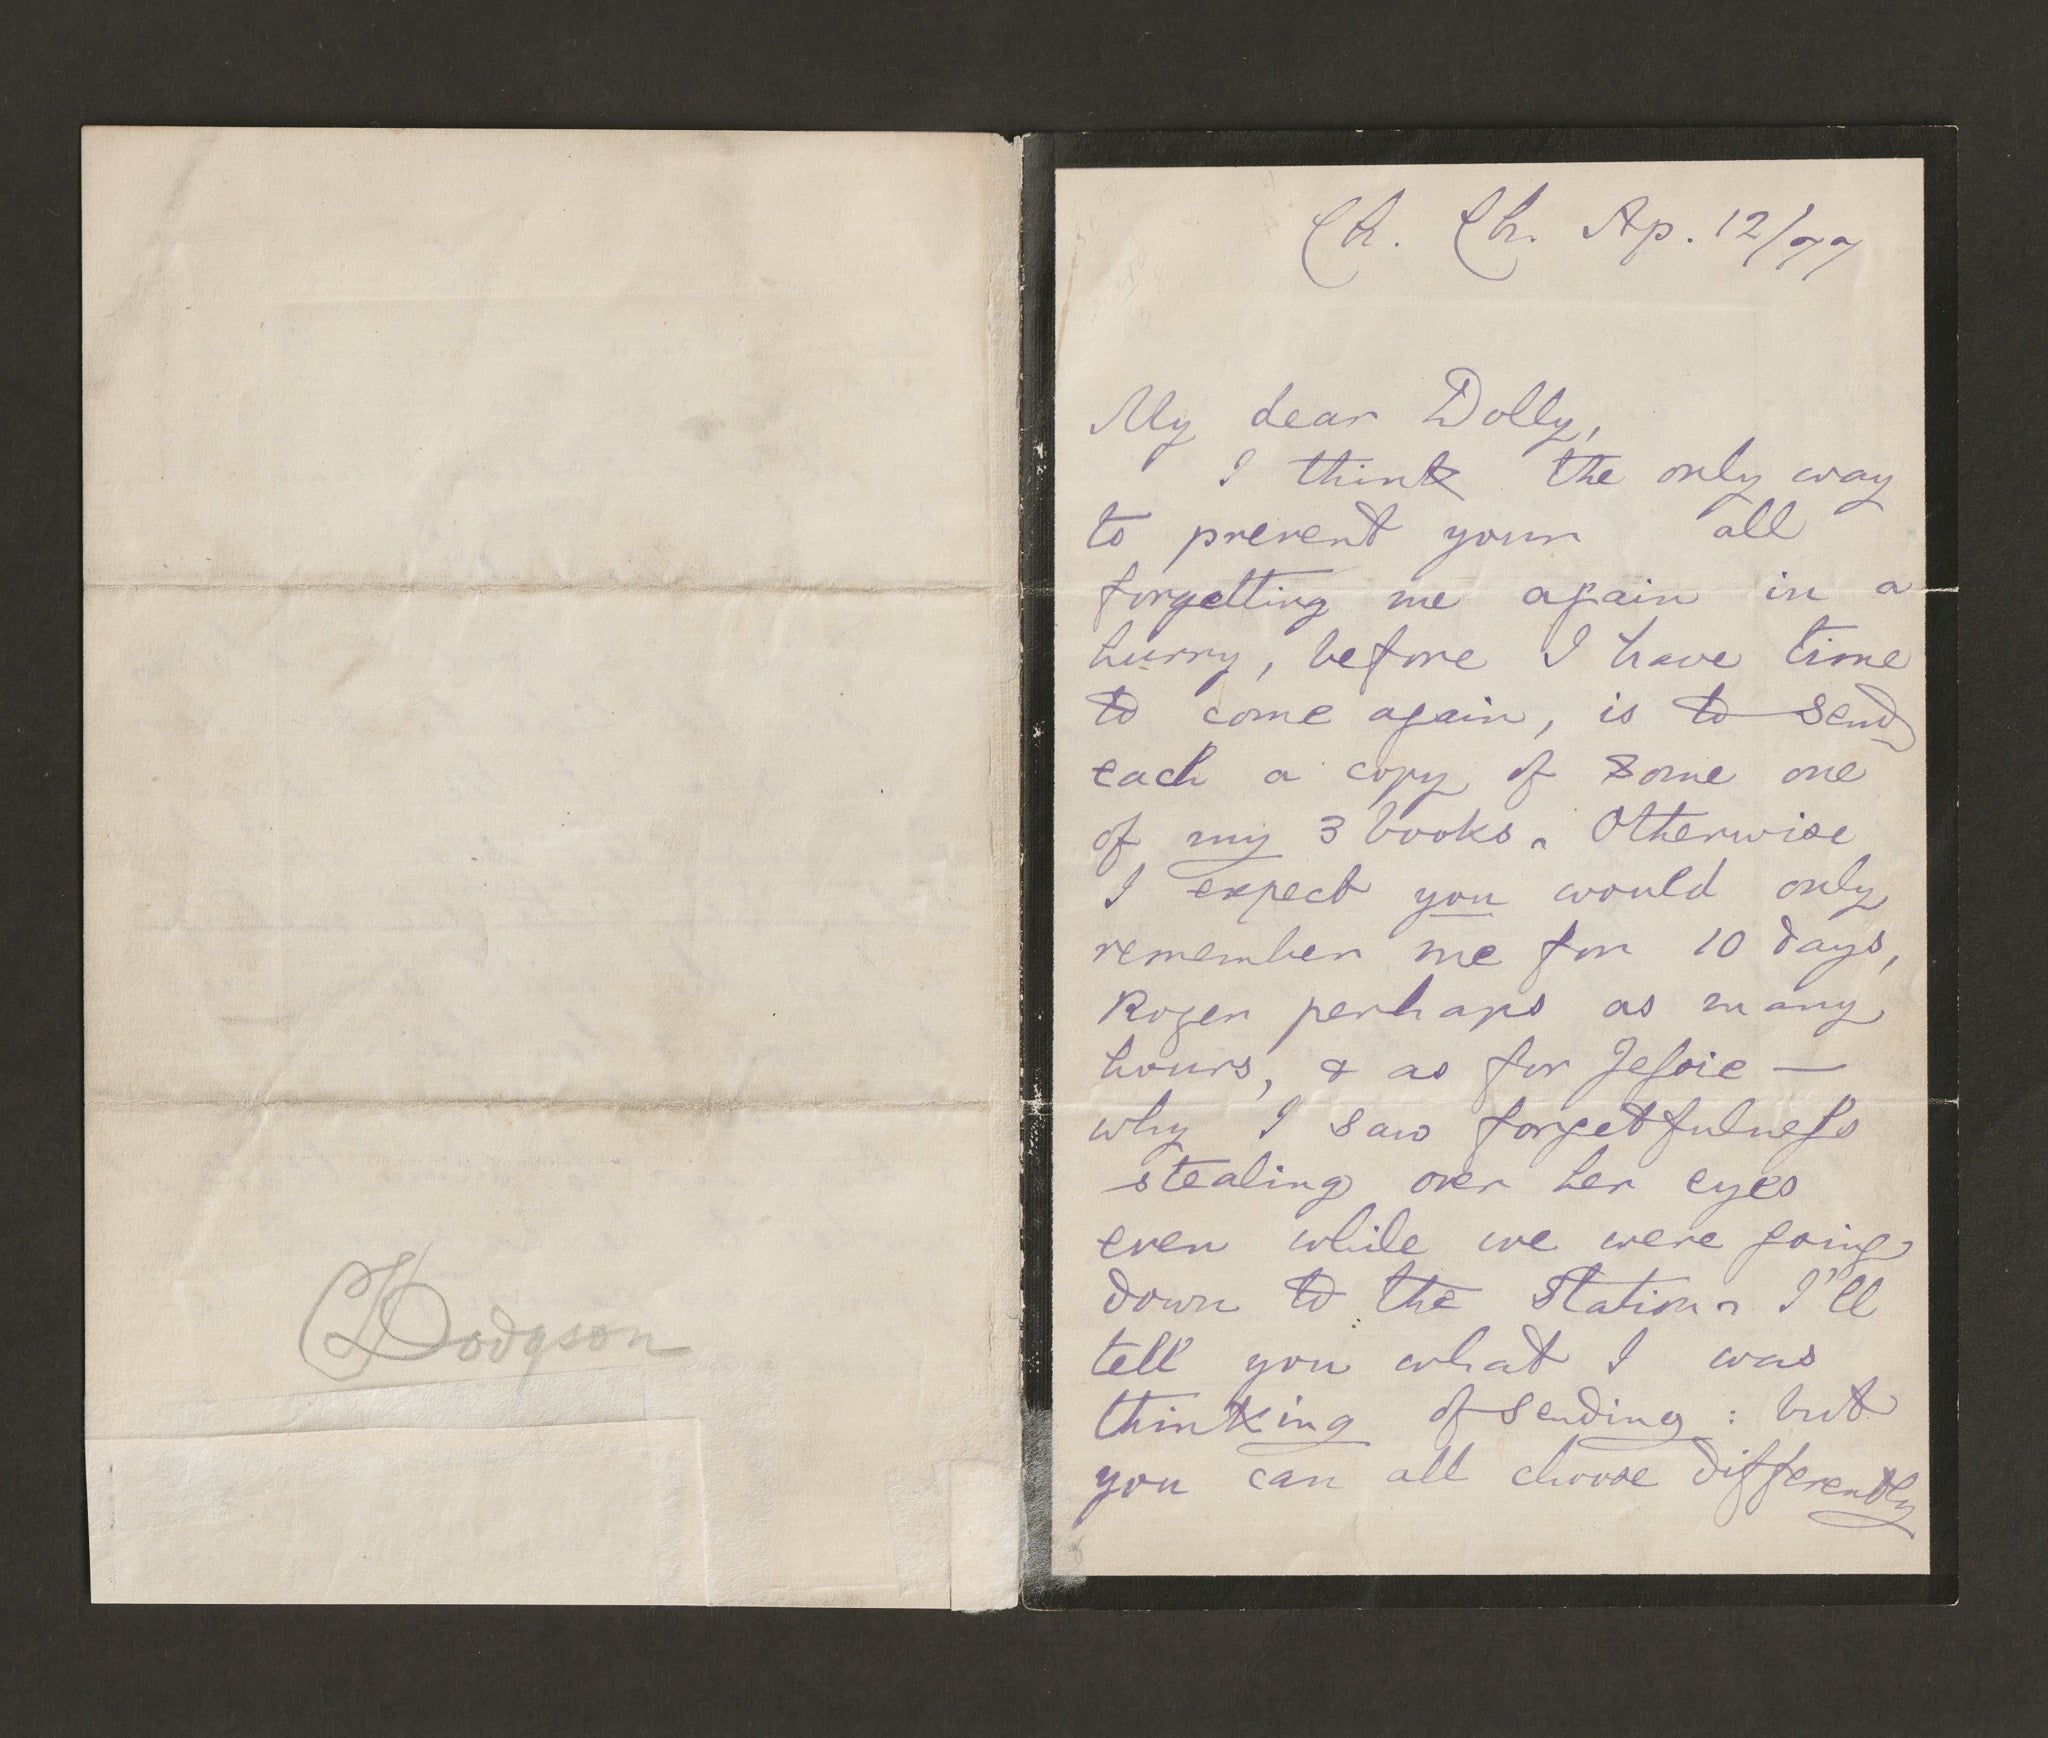 CLDodgson
Ch. Ch. Ap. 12/77
My dear Dolly,
I think the only way
to prevent your all
forgetting me again in a
hurry, before I have time
to come again, is to send
each a copy of some one
of my 3 books. Otherwise
I expect you would only
remember me for 10 days,
Roger perhaps as many
hours, & as for Jessie —
why I saw forgetfulness
stealing over her eyes
even while we were going
down to the station. I'll
tell you what I was
thinking of sending: but
you can all choose differently